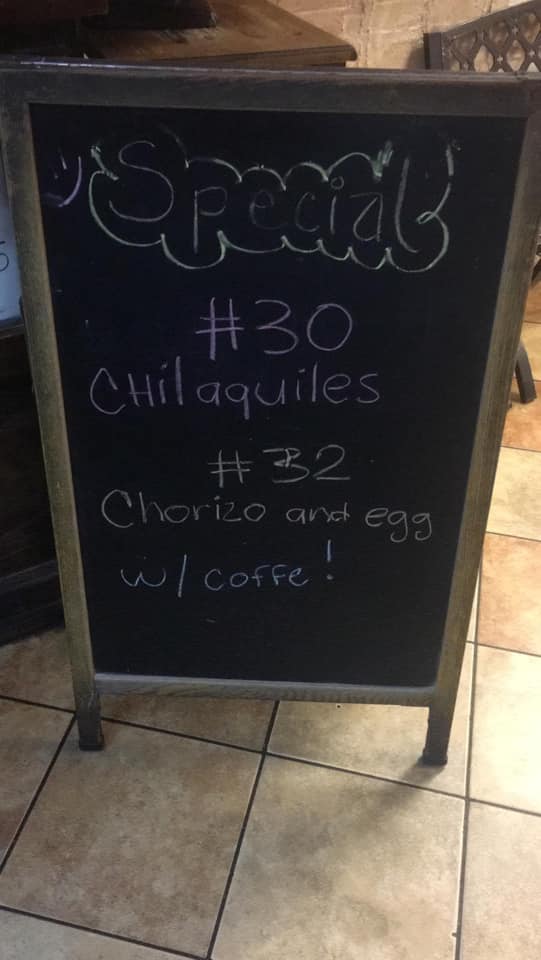 Special
#30
CHilaquiles
#32
Chorizo and egg
w/ coffe!